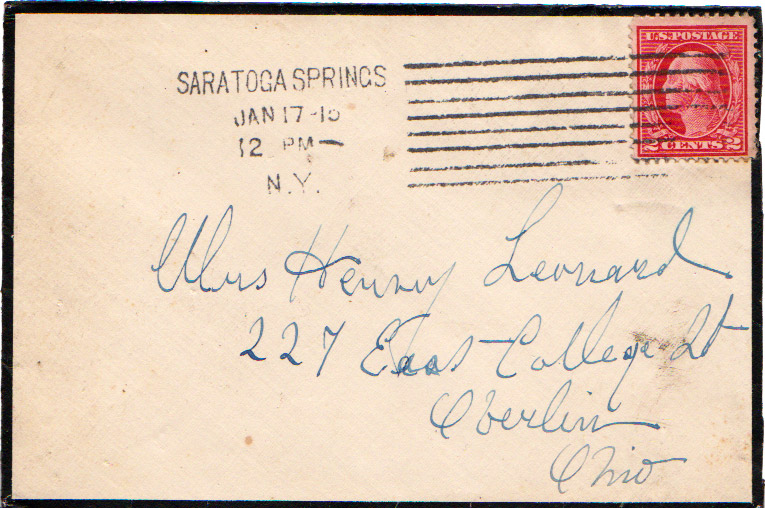 SARATOGA SPRINGS
JAN 17-15
12 PM
N.Y.
U.S. POSTAGE
2 CENTS 2
Mrs Henry Leonard
227 East College St
Oberlin
Ohio